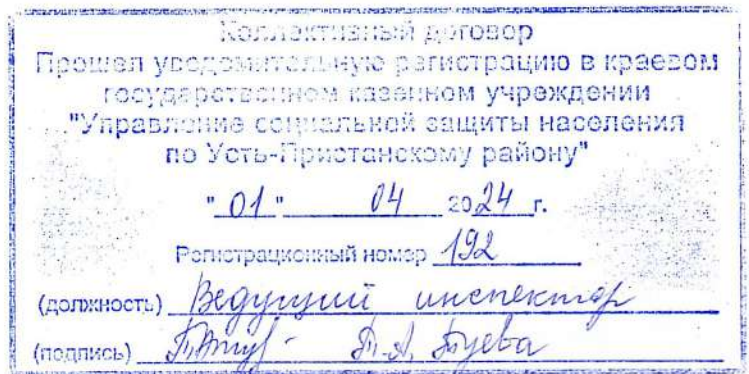 Коллективный договор
Прошел уведомительную регистрацию в краевом
государственном казенном учреждении
"Управление социальной защиты населения
по Усть-Пристанскому району"
"01" 04 2024 г.
Регистрационный номер 192
(должность) Ведущий инспектор
(подпись)